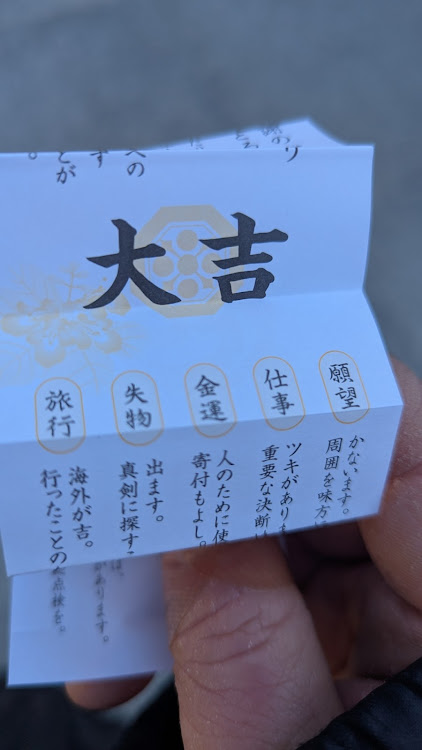 大吉
願望
かないます。
周囲を味方に
仕事
ツキがありま
重要な決断は
金運
人のために使
寄付もよし。
失物
出ます。
真剣に探す
旅行
海外が吉。
行ったことの
点検を。
があります。
への
ず
とが
。